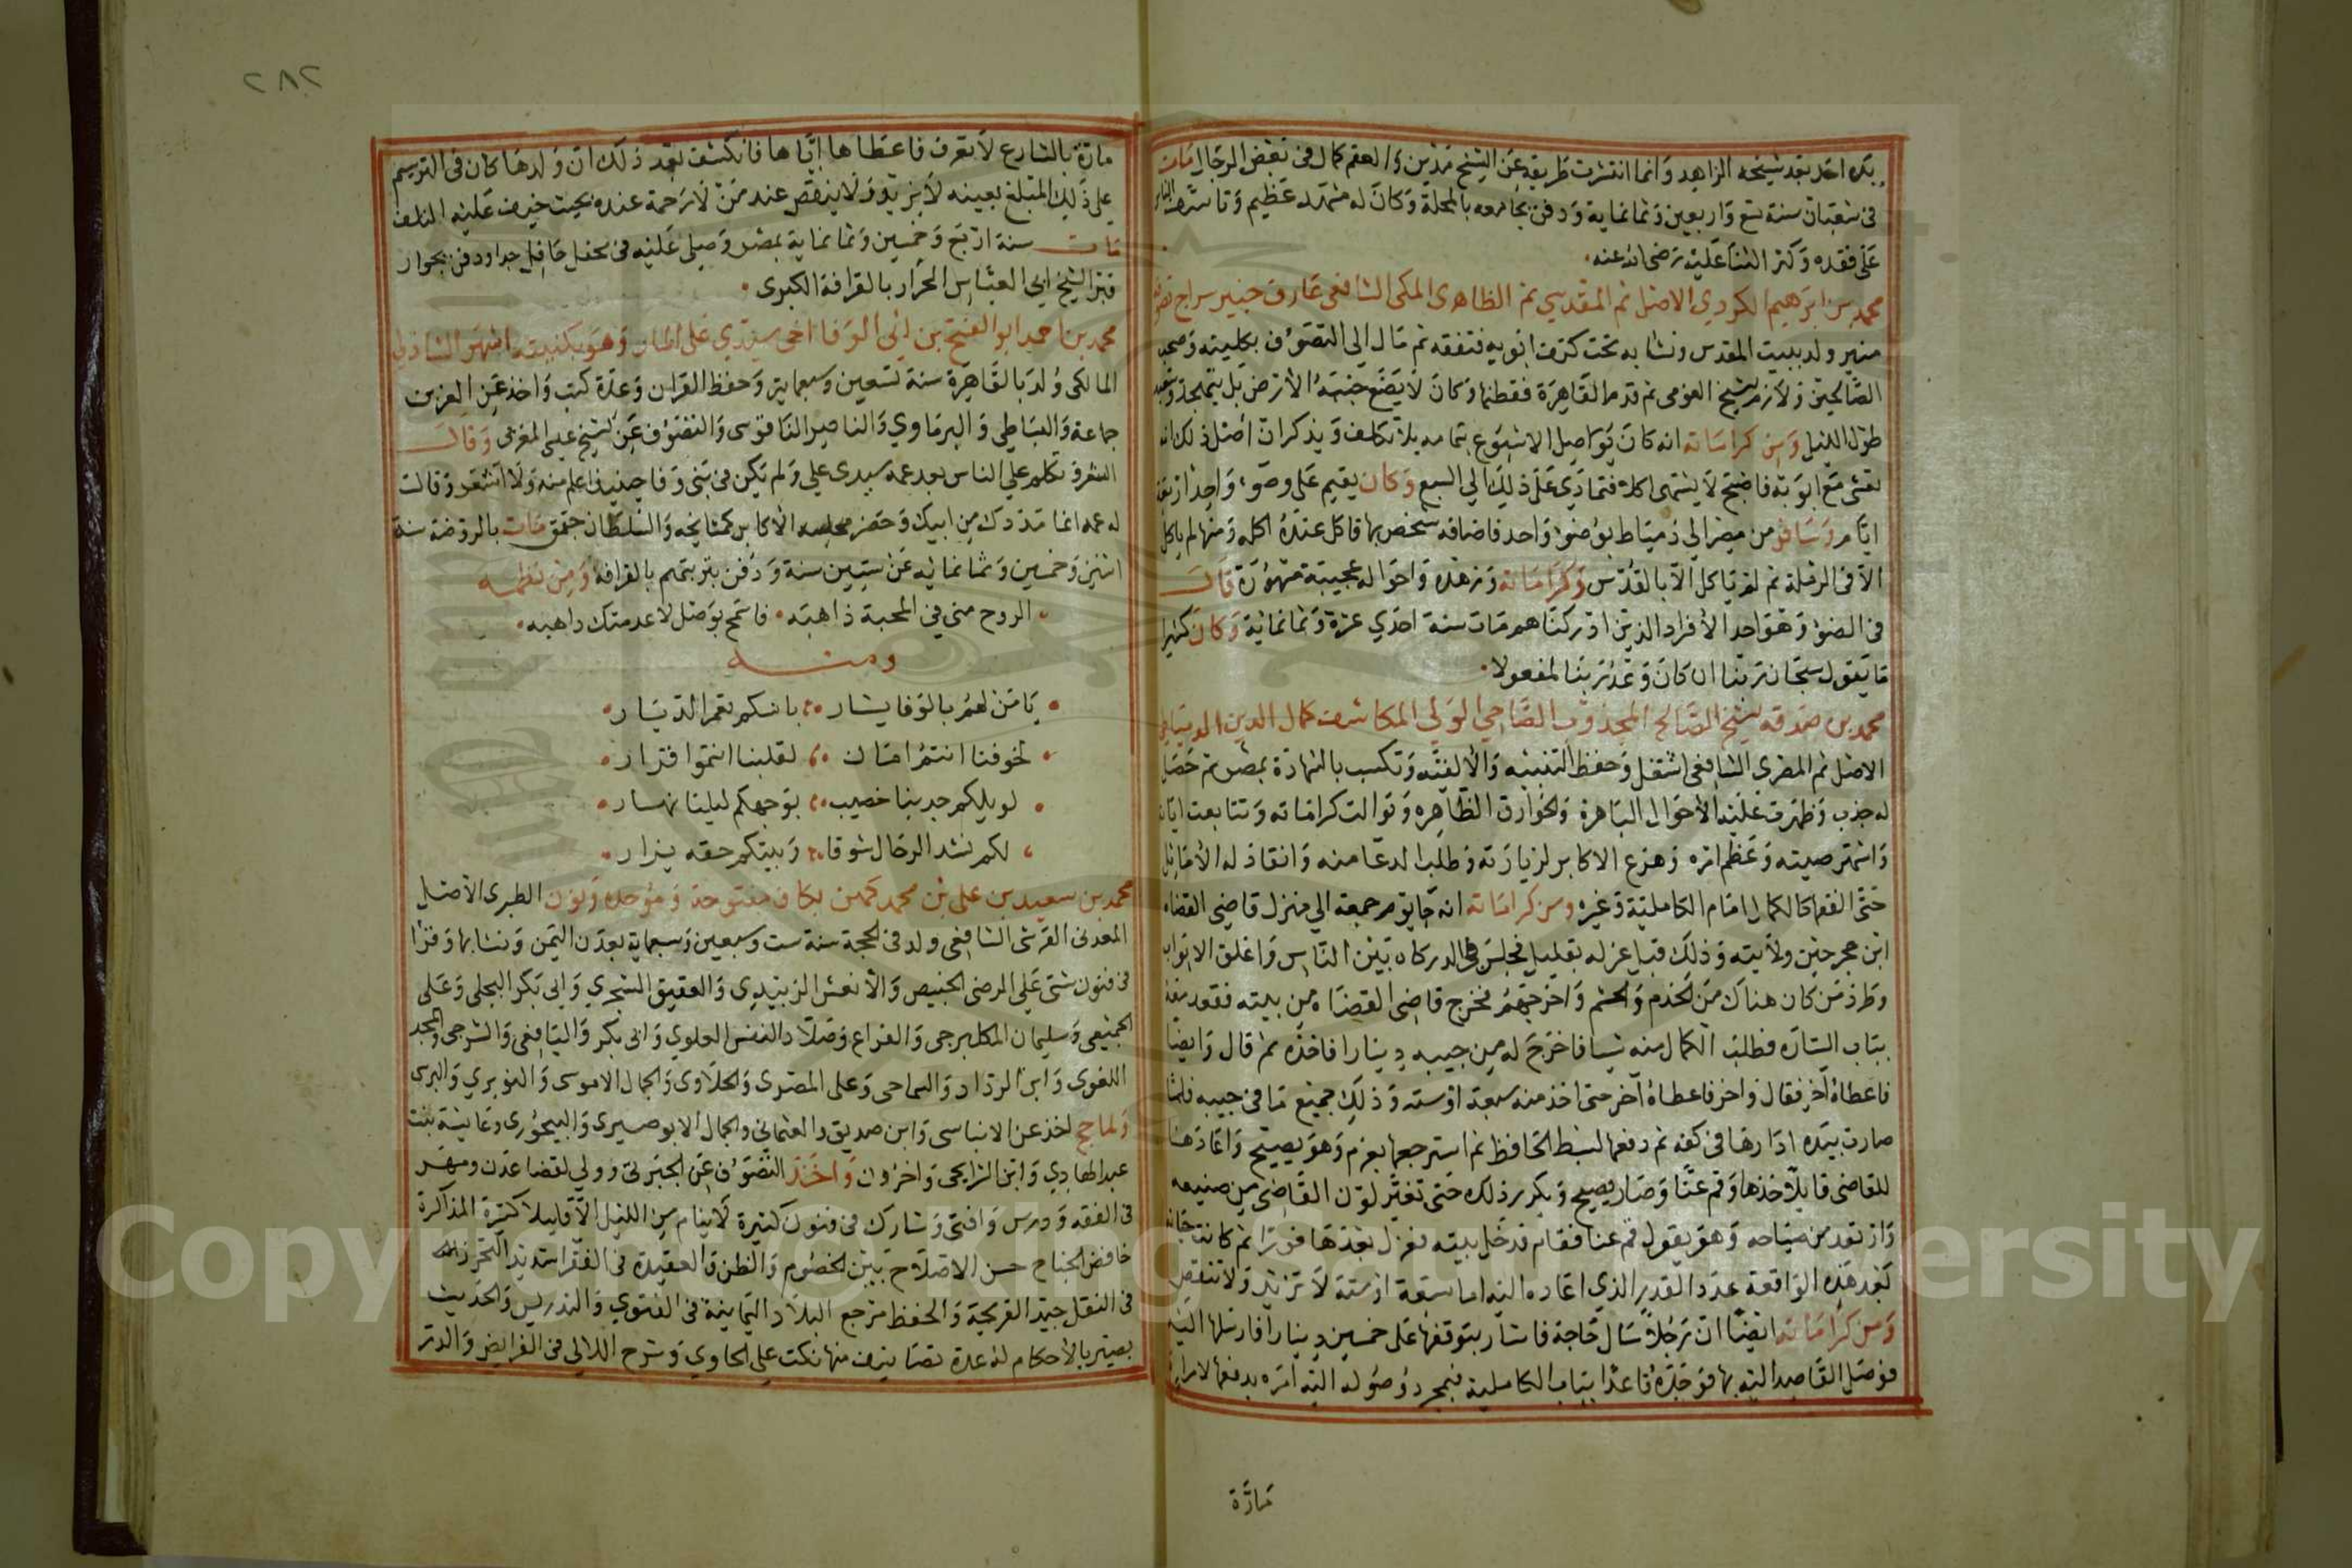 يده احد بعد شيخه الزاهد وانما انتشرت طريقه عن الشيخ مدين والهم كمال في بعض الرجال مات
في شعبان سنة تسع واربعين وثمانماية ودفن بجامعه بالمحلة وكان له مشهد عظيم وتاسف الناس
على فقده وكثر الثنا عليه رضى الله عنه
محمد بن ابرهيم الكردي الاصل ثم المقدسي ثم الظاهرى المكى الشافعى عارف خبير سراج
منير ولد ببيت المقدس ونشا به تحت كنف ابويه فتفقه ثم مال الى التصوف بكليته وصحب
الصالحين ولازم الشيخ القرمى ثم قدم القاهرة فقطنها وكان لا يضع جنبه الارض بل يتهجد
طول الليل ومن كراماته انه كان يواصل الاسبوع بتمامه بلا تكلف ويذكر ان اصل ذلك انه
تعشى مع ابويه فاصبح لا يشتهى اكلا فتمادى على ذلك الي السبع وكان يقيم على وضوء واحد اربعة
ايام وسافر من مصر الى دمياط بوضوء واحد فاضافه شخص بها فاكل عنده اكله ومنها لم ياكل
الا في الرملة ثم لم ياكل الا بالقدس وكراماته وزهده واحواله عجيبة مشهورة قال
في الضوء وهو احد الافراد الذين ادركناهم مات سنة احدي عشرة وثمانمائة وكان كثيرا
ما يقول سبحان ربنا ان كان وعد ربنا لمفعولا
محمد بن صدقه الشيخ الصالح المجذوب الصاحي الولي المكاشف كمال الدين الدمياطي
الاصل ثم المصرى الشافعى اشتغل وحفظ التنبيه والالفيه وتكسب بالشهادة بمصر ثم حصل
له جذب وظهرت عليه الاحوال الباهرة والخوارق الظاهره وتوالت كراماته وتتابعت اياته
واشتهر صيته وعظم امره وهرع الاكابر لزيارته وطلب الدعا منه وانقاد له الاماثل
حتى الفقها كالكمال امام الكاملية وغيره ومن كراماته انه جا يوم جمعة الي منزل قاضى القضاه
ابن حجر حين ولايته وذلك قبيل عزله بقليل فجلس في الدركاه بين الناس واغلق الابواب
وطرد من كان هناك من الخدم والحشم واخرجهم فخرج قاضى القضاه من بيته فقعد معه
بباب الستاره فطلب الكمال منه شيا فاخرج له من جيبه دينارا فاخذه ثم قال وايضا
فاعطاه آخر فقال واخر فاعطاه آخر حتى اخذ منه سبعة او سته وذلك جميع ما في جيبه فلما
صارت بيده ادارها في كفه ثم دفعها لسبط الحافظ ثم استرجعها بعزم وهو يصيح واعادها
للقاضى قايلا خذها وقم عنا وصار يصيح ويكرر ذلك حتى تغير لون القاضى من صنيعه
وارتعد من صياحه وهو يقول قم عنا فقام فدخل بيته فعزل بعدها فورا ثم كانت
بعد هذه الواقعة عدد القدر الذي اعاده اليه اما سبعة او ستة لا تزيد ولا تنقص
ومن كراماته ايضا ان رجلا سال حاجة فاشار بتوقفها على خمسين دينارا فارسلها اليه
فوصل القاصد اليه بها فوجده قاعدا بباب الكاملية فبمجرد وصوله اليه امره بدفعها لامراة
مارة
٢٨٢
مارة بالشارع لا تعرف فاعطاها اياها فانكشف بعد ذلك ان ولدها كان في الترسيم
على ذلك المبلغ بعينه لا يزيد ولا ينقص عند من لا رحمة عنده بحيث خيف عليه التلف
مات سنة اربع وخمسين وثمانماية بمصر وصلى عليه في محفل حافل جدا ودفن بجوار
قبر الشيخ ابي العباس الحرار بالقرافة الكبرى
محمد بن احمد ابو الفتح بن ابي الوفا اخى سيدي على وهو بكنيته اشهر الشاذلي
المالكى ولد بالقاهرة سنة تسعين وسبعماية وحفظ القران وعدة كتب واخذ عن العز بن
جماعة والبساطى والبرماوي والناصر الناقوسى والتصوف عن الشيخ على المغربى وقال
الشعر وتكلم علي الناس بعد عمه سيدى علي ولم يكن في بني وفا حينيذ اعلم منه ولا اشعر وقالت
له عمه انما مددك من ابيك وحضر مجلسه الاكابر كمشايخه والسلطان جقمق مات بالروضة سنة
اثنين وخمسين وثمانمائه عن ستين سنة ودفن بتربتهم بالقرافة ومن نظمه
الروح مني في المحبة ذاهبه فاسمح بوصل لا عدمتك واهبه
ومنه
يا من لهم بالوفا يشار بانسكم تعمر الديار
لخوفنا انتم امان لقلبنا انتموا قرار
لوبلكم جدبنا خصيب بوجهكم ليلنا نهار
لكم نشد الرحال شوقا وبيتكم حقه يزار
محمد بن سعيد بن على بن محمد كبن بكاف مفتوحة وموحده ونون الطبرى الاصل
العدنى القرشى الشافعى ولد في الحجة سنة ست وسبعين وسبعماية بعدن اليمن ونشا بها وقرا
في فنون شتى على الرضى الحبيص والانفس الزبيدى والعفيف الشحري وابى بكر البجلى وعلى
الجميعى وسليمان الكلبرجى والقراع وصلاد النفس العلوي وابى بكر واليافعى والشرجى والمجد
اللغوى وابن الرداد والحلاوى والجمال الاموى والنويري والبرى
ولما حج اخذ عن الابناسى وابن صديق والعثمانى والجمال الابوصيرى والبيجورى وعائشة بنت
عبد الهادي وابن الزايحى واخرون واخذ التصوف عن الجبرتى وولي القضا عدن ومهر
في الفقه ودرس وافتى وشارك في فنون كثيرة لا ينام من الليل الا قليلا كثير المذاكرة
خافض الجناح حسن الاصلاح بين الخصوم والظن والعقيدة في الفقرا شديد التحرز
في النقل جيد القريحة والحفظ مرجع البلاد اليمانية في الفتوي والتدريس والحديث
بصير بالاحكام له عدة تصانيف منها نكت على الحاوي وشرح اللالى في الفرايض والدر
Copyright © King Saud University